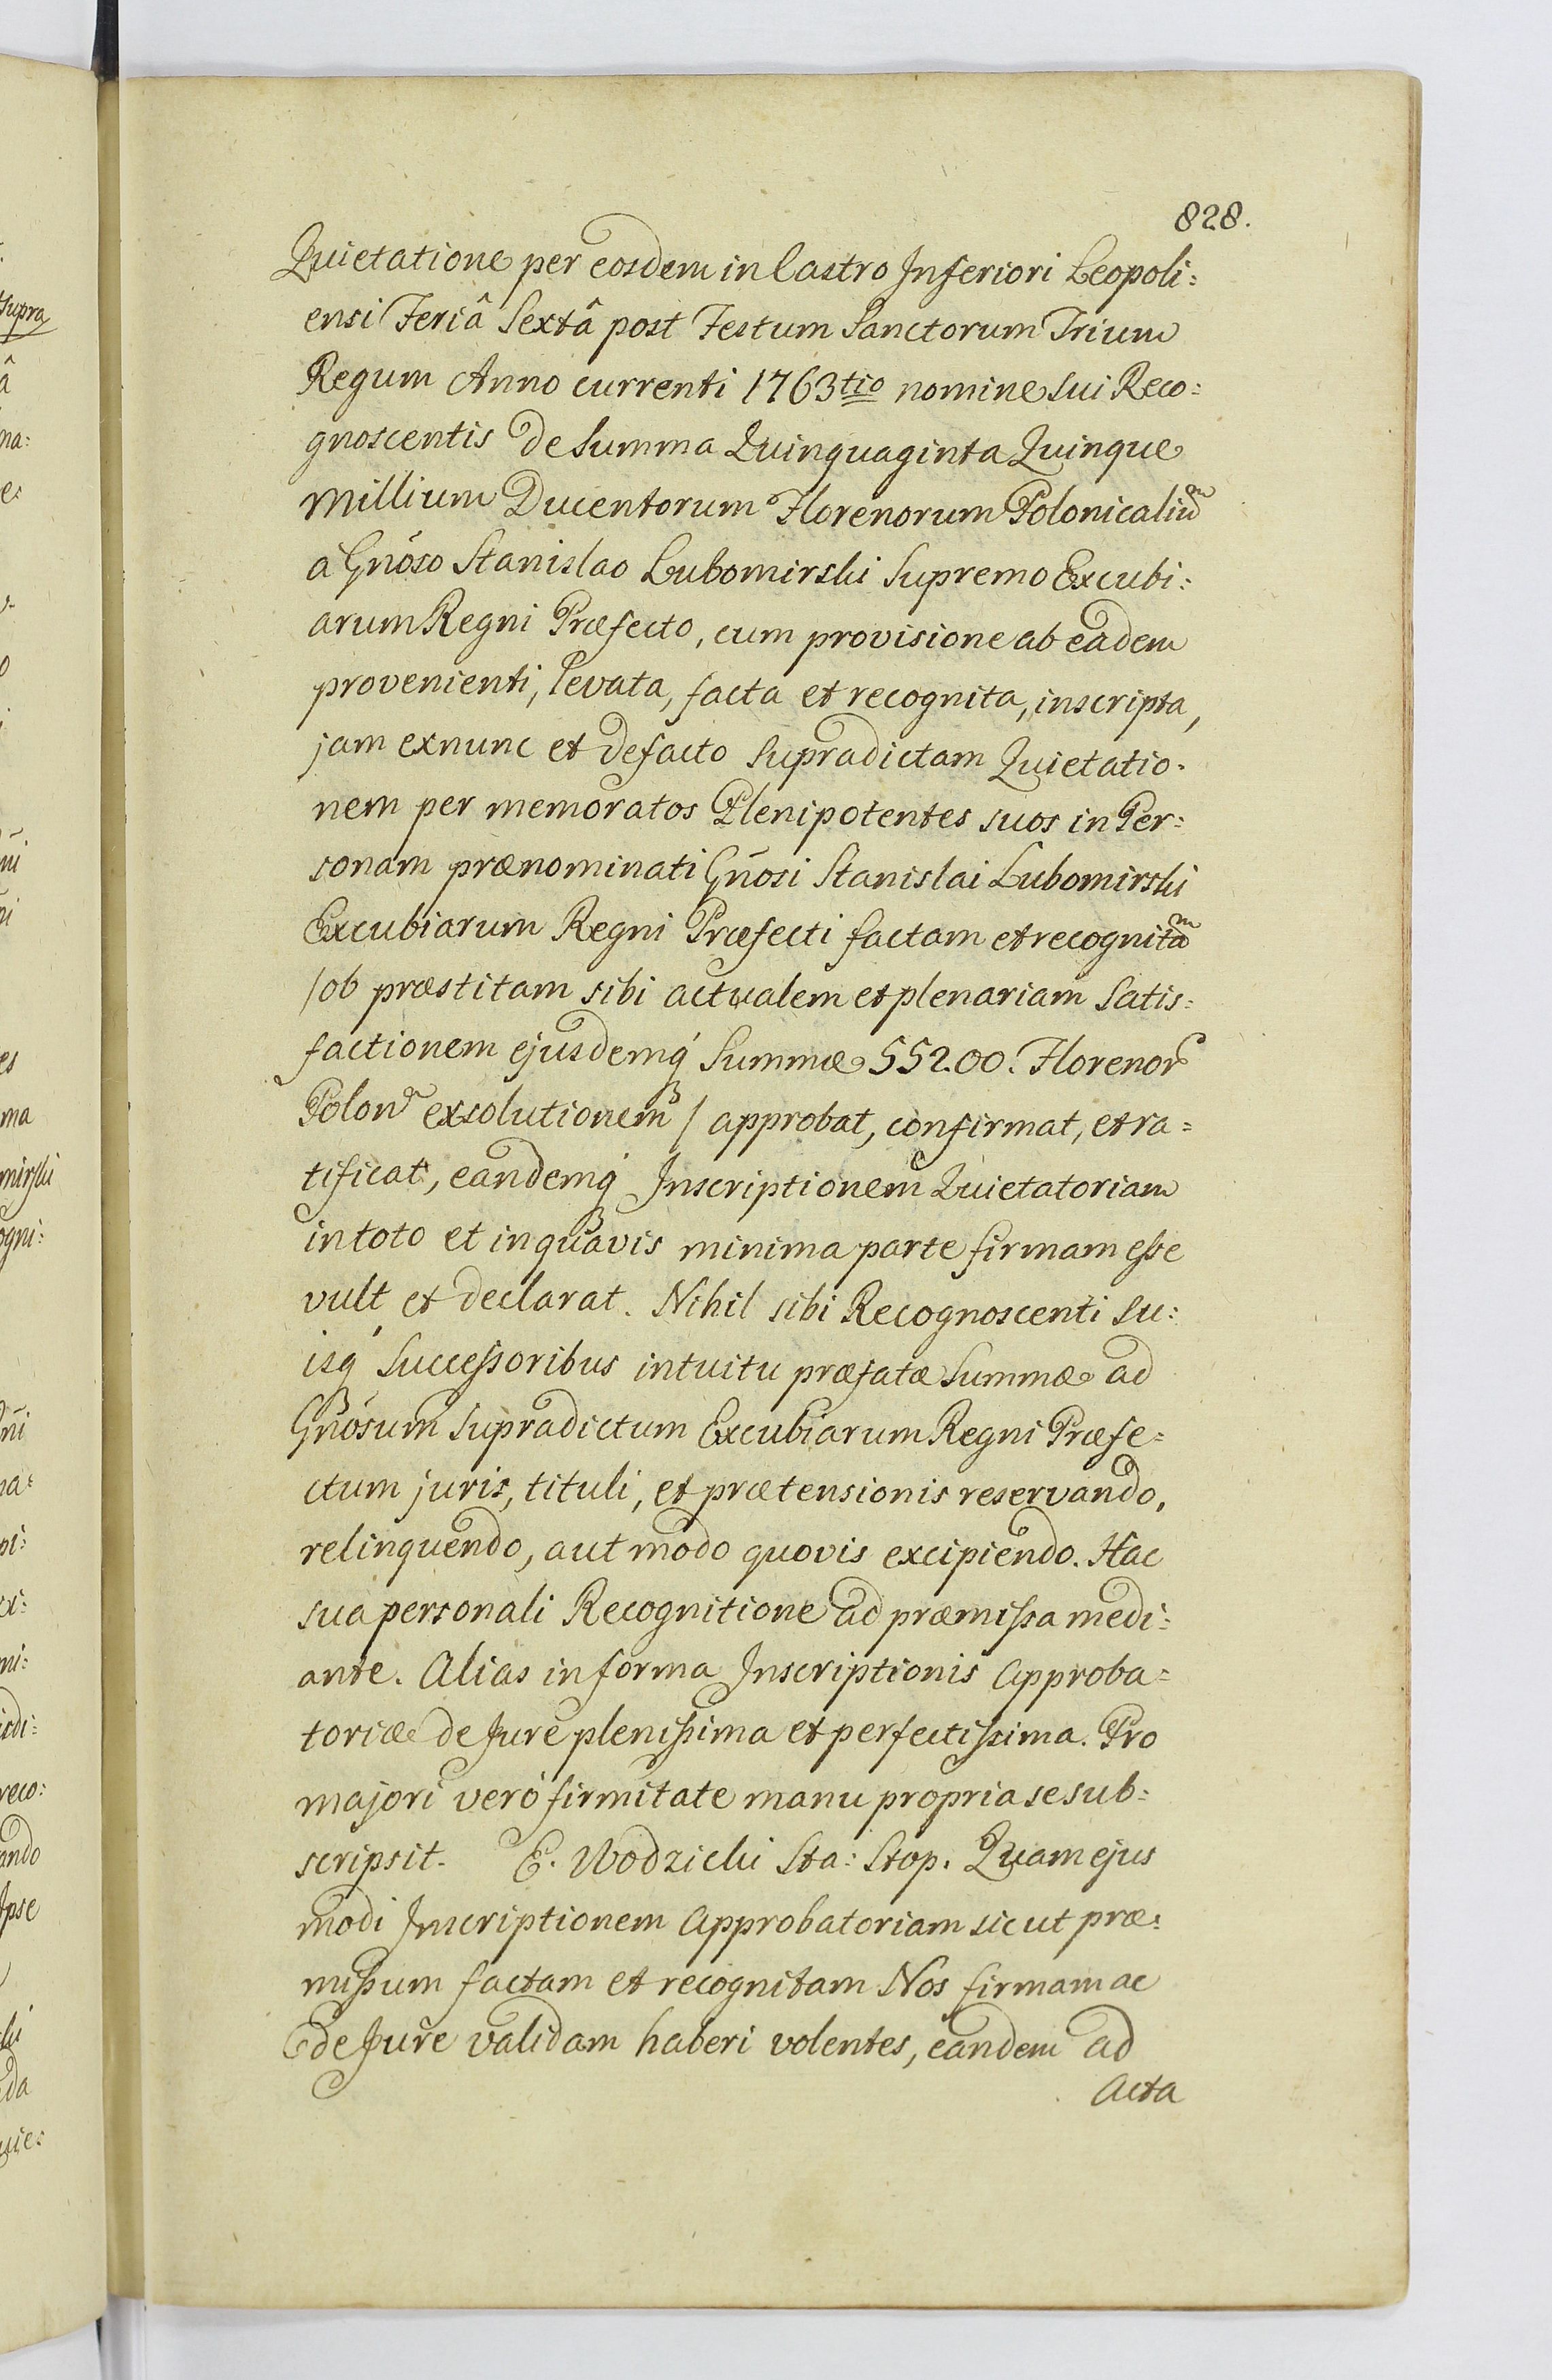 828.
Quietatione per eosdem in Castro Inferiori Leopoli:
ensi Feriâ Sextâ post Festum Sanctorum Trium
Regum Anno currenti 1763tio nomine sui Reco:
gnoscentis de Summa Quinquaginta Quinque
Millium Ducentorum Florenorum Polonicaliu͠m
á Gnóso Stanislao Lubomirski Supremo Excubi:
arum Regni Præfecto, cum provisione ab eadem
provenienti, levata, facta et recognita, inscripta,
jam exnunc et defacto supradictam Quietatio:
nem per memoratos Plenipotentes suos in Per:
sonam prænominati Gnõsi Stanislai Lubomirski
Excubiarum Regni Præfecti factam et recognitam
/ob præstitam sibi actualem et plenariam Satis:
factionem ejusdemq́ Summæ 55200. Florenor
Polon exsolutionem/ approbat, confirmat, et ra=
tificat, eandemq́ Inscriptionem Quietatoriam
in toto et in quavis minima parte firmam eſse
vult et declarat. Nihil sibi Recognoscenti su:
isq́ Succeſsoribus intuitu præfatæ Summæ ad
Gnósum Supradictum Excubiarum Regni Præfe=
ctum juris, tituli, et prætensionis reservando,
relinquendo, aut modo quovis excipiendo. Hac
sua personali Recognitione ad præmiſsa medi:
ante. Alias in forma Inscriptionis Approba=
toriæ de Jure pleniſsima et perfectiſsima. Pro
majori veró firmitate manu propria se sub:
scripsit. E. Wodzicki Sta: Stop. Quam ejus
modi Inscriptionem Approbatoriam sicut præ:
miſsum factam et recognitam Nos firmam ac
de Jure validam haberi volentes, eandem ad
Acta